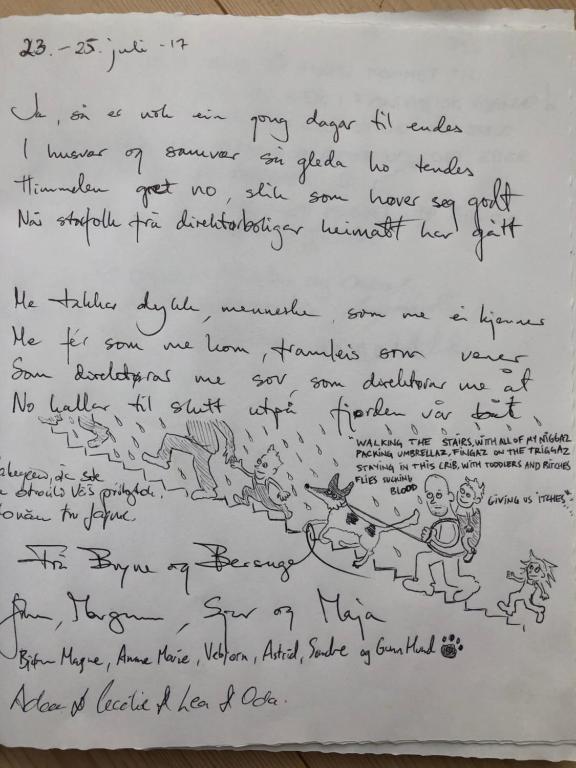 23.-25. juli -17
Ja, så er nok ein gong dagar til endes
I husvar og samvær så gleda ho tendes
Himmelen gret no, slik som høver seg godt
Når storfolk frå direktørboligar heimatt har gått
Me takkar dykk, menneske, som me ei kjenner
Me fér som me kom, framleis som vener
Som direktørar me sov, som direktørar me åt
No kallar til slutt utpå fjorden vår båt
"WALKING THE STAIRS, WITH ALL OF MY NIGGAZ
PACKING UMBRELLAZ, FINGAZ ON THE TRIGGAZ
STAYING IN THIS CRIB, WITH TODDLERS AND BITCHES
FLIES SUCKING
BLOOD
GIVING US ITCHES"
Frå Bryne og
Margunn, og Maja
Bjørn Magne, Anne Marie, Vebjørn, Astrid, Sondre og Gunn Hund
& Cecilie & Lea & Oda.